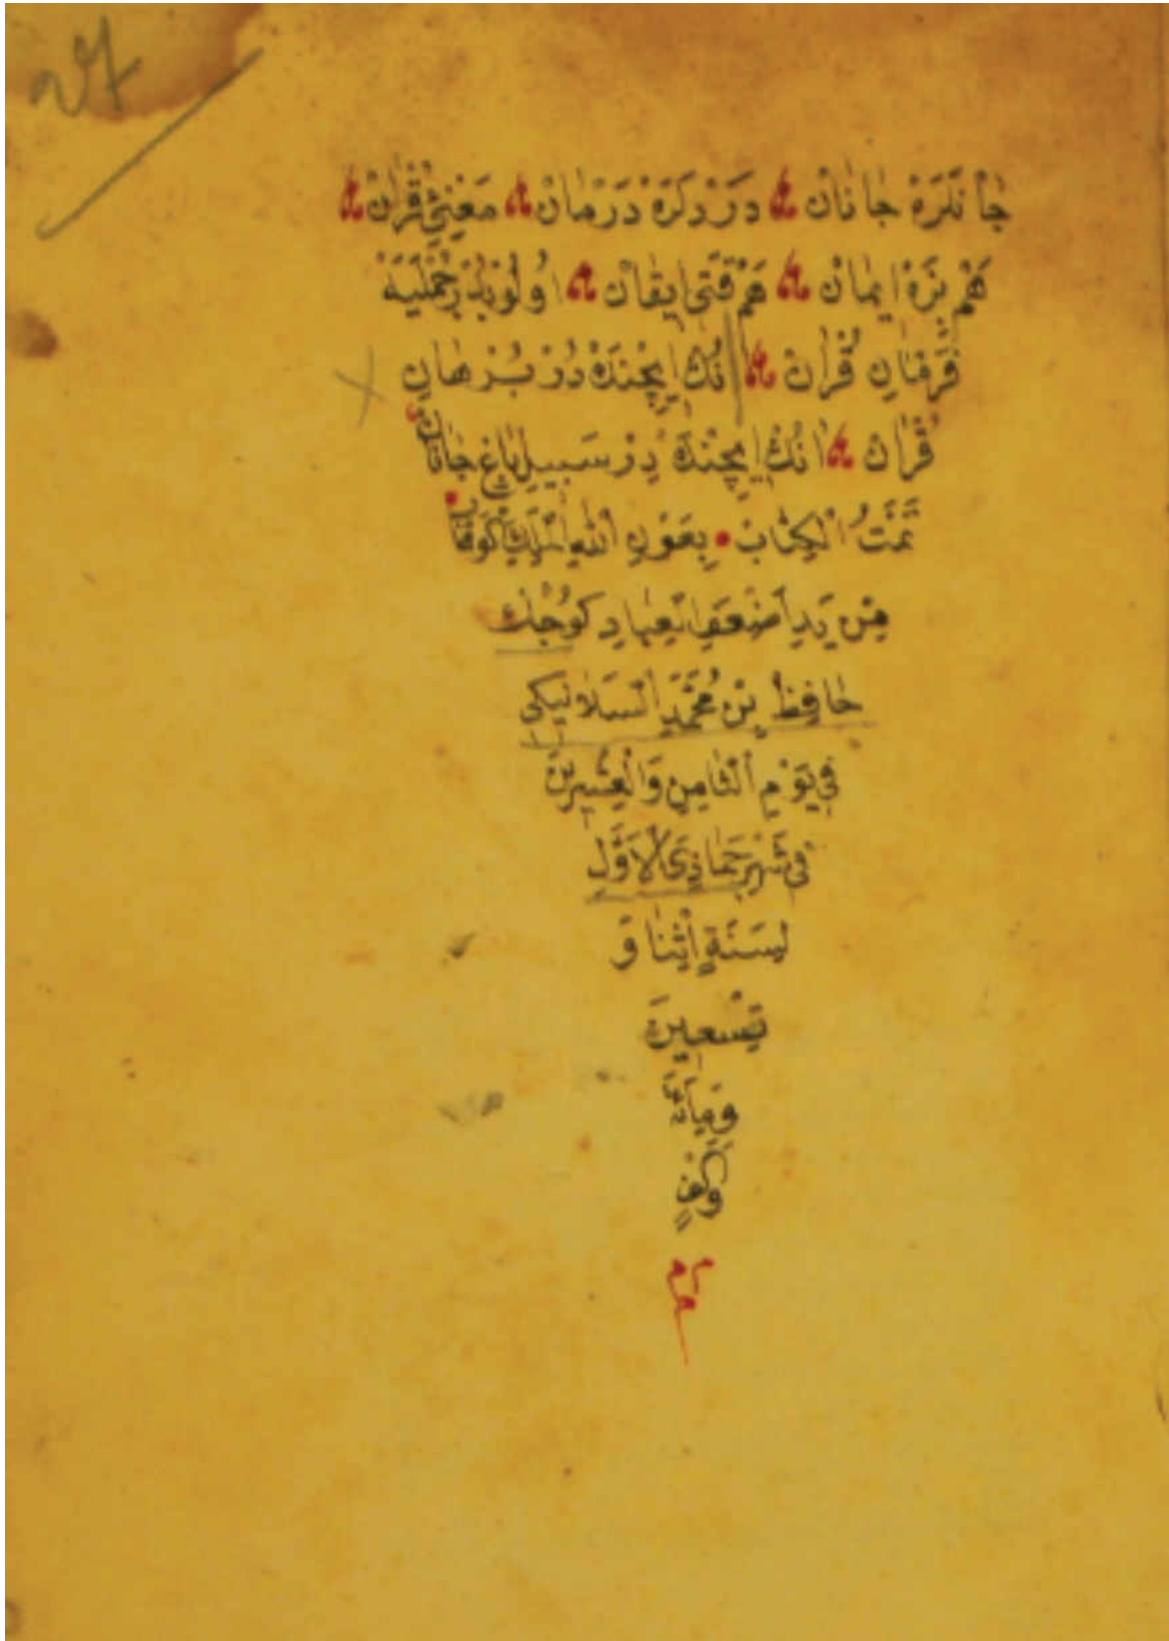 جَانْلَرَهْ جَانَانْ دَرْدْلَرَهْ دَرْمَانْ مَعْنِئِ قُرْاٰنْ
هَمْ بِزَهْ اِيمَانْ هَمْ قَتِى اِيقَانْ اُولُوبْدُرْ جُمْلَيَهْ
فَرْمَانِ قُرْاٰنْ اَنُكْ اِيچِنْدَهْ دُرْ بُرْهَانِ
قُرْاٰنْ اَنُكْ اِيچِنْدَهْ دِرْ سَبِيلِ بَاغِ جَانَانْ
تَمَّتُ الْكِتَابْ بِعَوْنِ اللهِ الْمَلِكِ
مِنْ يَدِ اَضْعَفِ الْعِبَادِ كُوجُكْ
حَافِظْ بِنْ مُحَمَّدِ السَلَانِيكِى
فِى يَوْمِ الثَّامِنِ وَالْعِشْرِينَ
فِى شَهْرِ جَمَاذِىَ الْاَوَّلِ
لِسَنَةٍ اِثْنَا وَ
تِسْعِينَ
وَمِأَةَ
وَاَلْفٍ